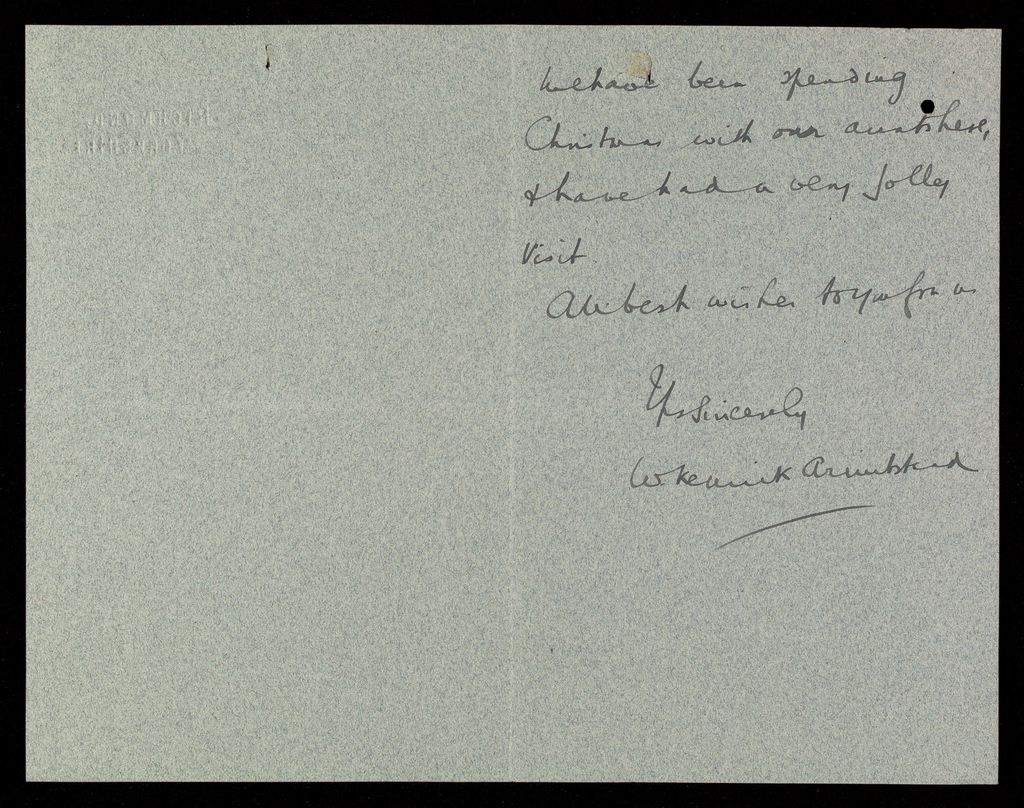 We have been spending
Christmas with our aunts here,
& have had a very jolly
visit.
All best wishes to you from us
Yrs sincerely
W Kenrick Armitstead